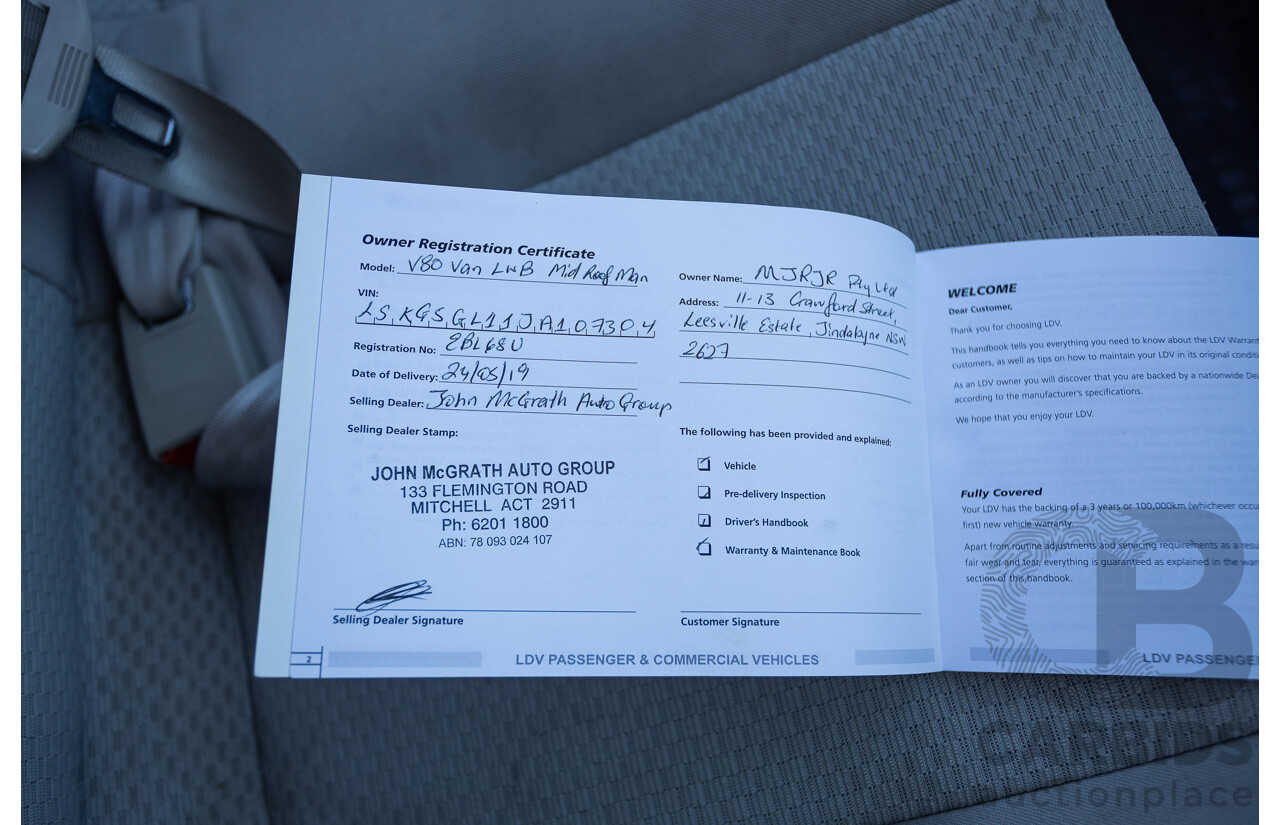 Owner Registration Certificate
Model: V80 Van LWB Mid Roof Man
VIN:
LSKG5GL11JA107304
Registration No: EBL68U
Date of Delivery: 24/05/19
Selling Dealer: John McGrath Auto Group
Selling Dealer Stamp:
JOHN McGRATH AUTO GROUP
133 FLEMINGTON ROAD
MITCHELL ACT 2911
Ph: 6201 1800
ABN: 78 093 024 107
Selling Dealer Signature
Owner Name: MJRJR Pty Ltd
Address: 11-13 Crawford Street,
Leesville Estate, Jindabyne NSW
2627
The following has been provided and explained:
Vehicle
Pre-delivery Inspection
Driver's Handbook
Warranty & Maintenance Book
Customer Signature
2
LDV PASSENGER & COMMERCIAL VEHICLES
WELCOME
Dear Customer,
Thank you for choosing LDV.
This handbook tells you everything you need to know about the LDV Warrant
customers, as well as tips on how to maintain your LDV in its original conditi
As an LDV owner you will discover that you are backed by a nationwide Dea
according to the manufacturer's specifications.
We hope that you enjoy your LDV.
Fully Covered
Your LDV has the backing of a 3 years or 100,000km (whichever occu
first) new vehicle warranty.
Apart from routine adjustments and servicing requirements as a resu
fair wear and tear, everything is guaranteed as explained in the war
section of this handbook.
LDV PASSENGE
CB
CARBIDS
auctionplace